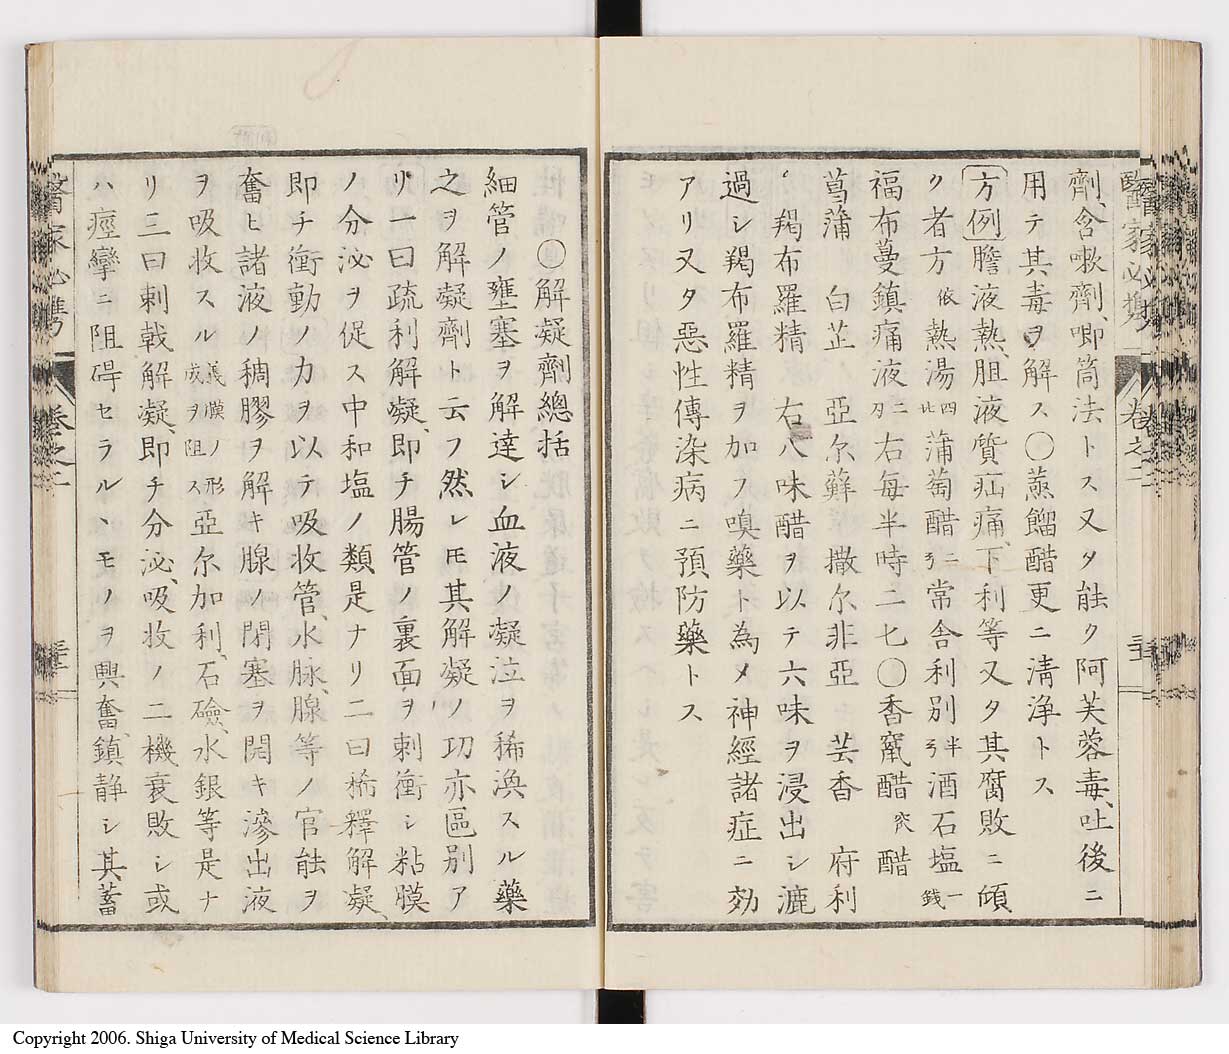 醫家必攜 卷之二
劑、含嗽劑、喞筒法トス又タ能ク阿芙蓉毒、吐後ニ
用テ其毒ヲ解ス、〇蒸餾醋更ニ淸淨トス
方例 膽液熱、胆液質疝痛、下利等又タ其腐敗ニ傾
ク者方 依 熱湯 四比 蒲萄醋 二ヲ 常舍利別 半ヲ 酒石塩 一錢
福布蔓鎮痛液 二刃 右每半時二匕〇香竄醋 衆 醋
菖蒲 白芷 亞尔蘚 撒尔非亞 芸香 府利
羯布羅精 右八味醋ヲ以テ六味ヲ浸出シ漉
過シ羯布羅精ヲ加フ嗅藥ト為メ神經諸症ニ効
アリ又タ惡性傳染病ニ預防藥トス
〇解凝劑總括
細管ノ壅塞ヲ解達シ血液ノ凝泣ヲ稀渙スル藥
之ヲ解凝劑ト云フ然レモ其解凝ノ功亦區別ア
リ一曰疏利解凝、即チ腸管ノ裏面ヲ刺衝シ粘膜
ノ分泌ヲ促ス中和塩ノ類是ナリ二曰稀釋解凝、
即チ衝動ノ力ヲ以テ吸收管、水脉、腺等ノ官能ヲ
奮ヒ諸液ノ稠膠ヲ解キ腺ノ閉塞ヲ開キ滲出液
ヲ吸收スル 義膜ノ形成ヲ阻ス 亞尔加利、石鹼、水銀等是ナ
リ三曰刺戟解凝、即チ分泌、吸收ノ二機衰敗シ或
ハ痙攣ニ阻碍セラルヽモノヲ興奮、鎮静シ其蓄
醫家必攜 卷之二
Copyright 2006. Shiga University of Medical Science Library